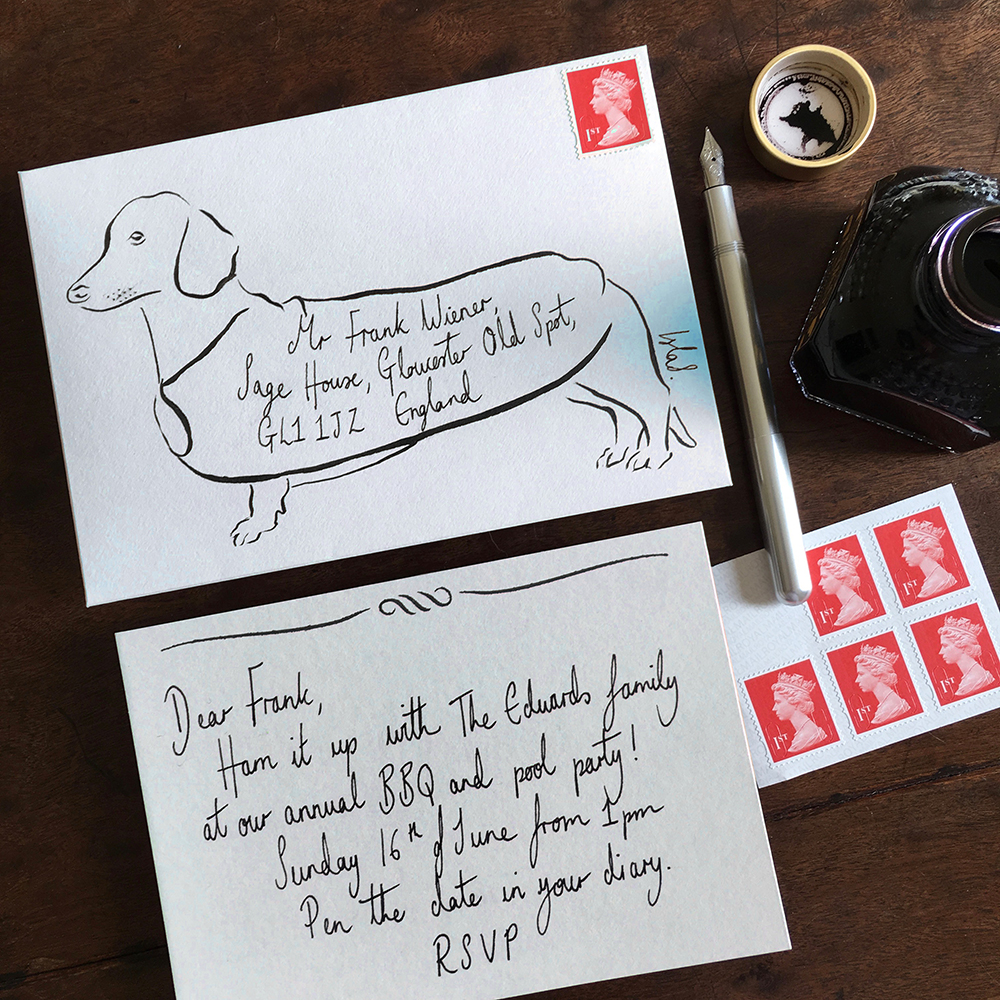 1ST
Mr Frank Wiener,
Sage House, Gloucester Old Spot,
GL1 1JZ England
Dear Frank,
Ham it up with The Edwards family
at our annual BBQ and pool party!
Sunday 16th of June from 1pm
Pen the date in your diary.
RSVP
1ST
1ST
1ST
1ST
1ST